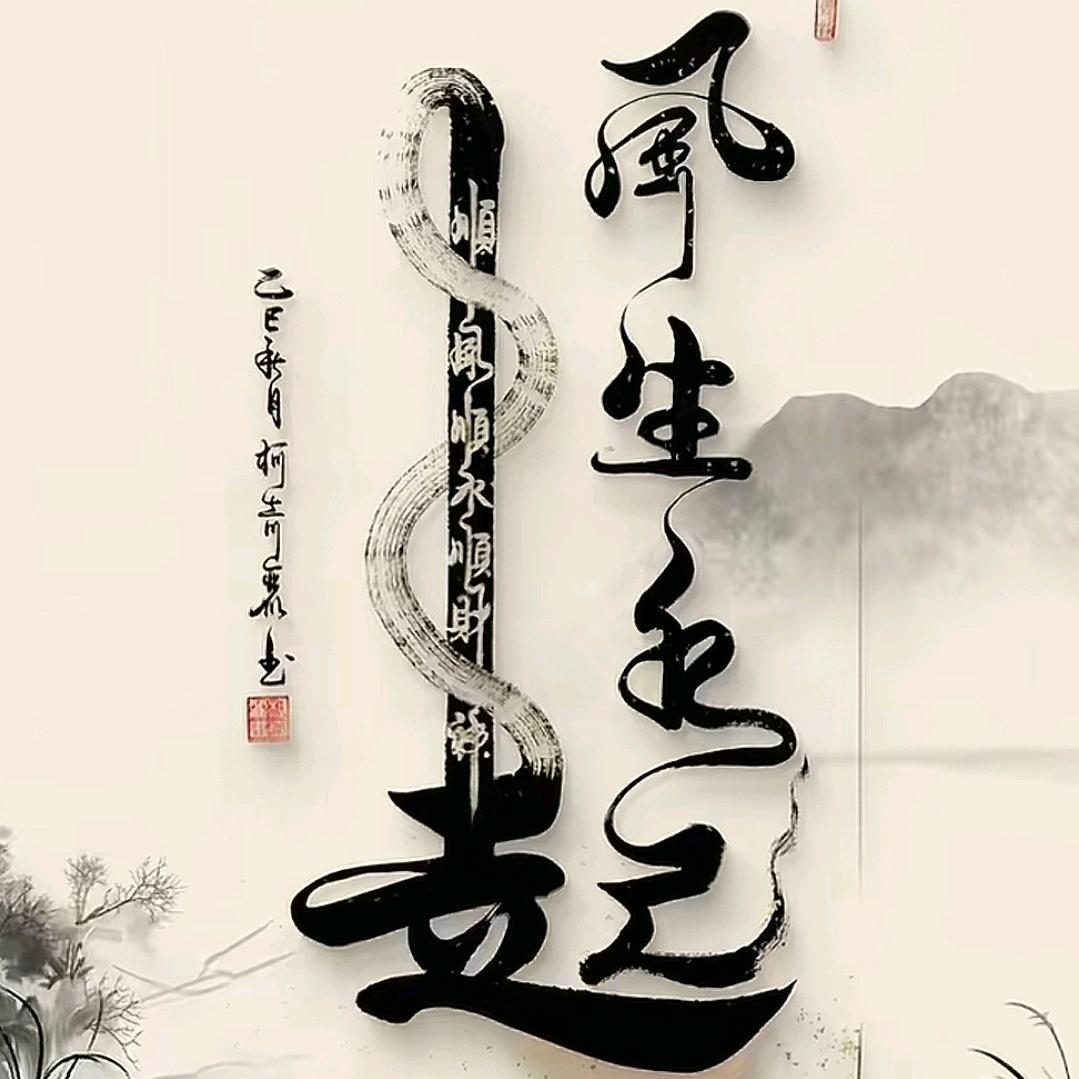 風生水起
順風順水順財神
乙巳秋月 柯